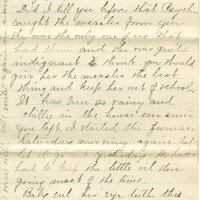 Did I tell you before that Psych
caught the measles from you
She was the only one of us that
had them and she was quit
indignant to think you should
give her the measles the last
thing and keep her out of school.
It has been so rainy and
chilly in the house ever since
you left. I started the furnace
Saturday morning again but
let it go out yesterday. We have
had to keep the little oil stove
going most of the time.
Baby cut her eye teeth this